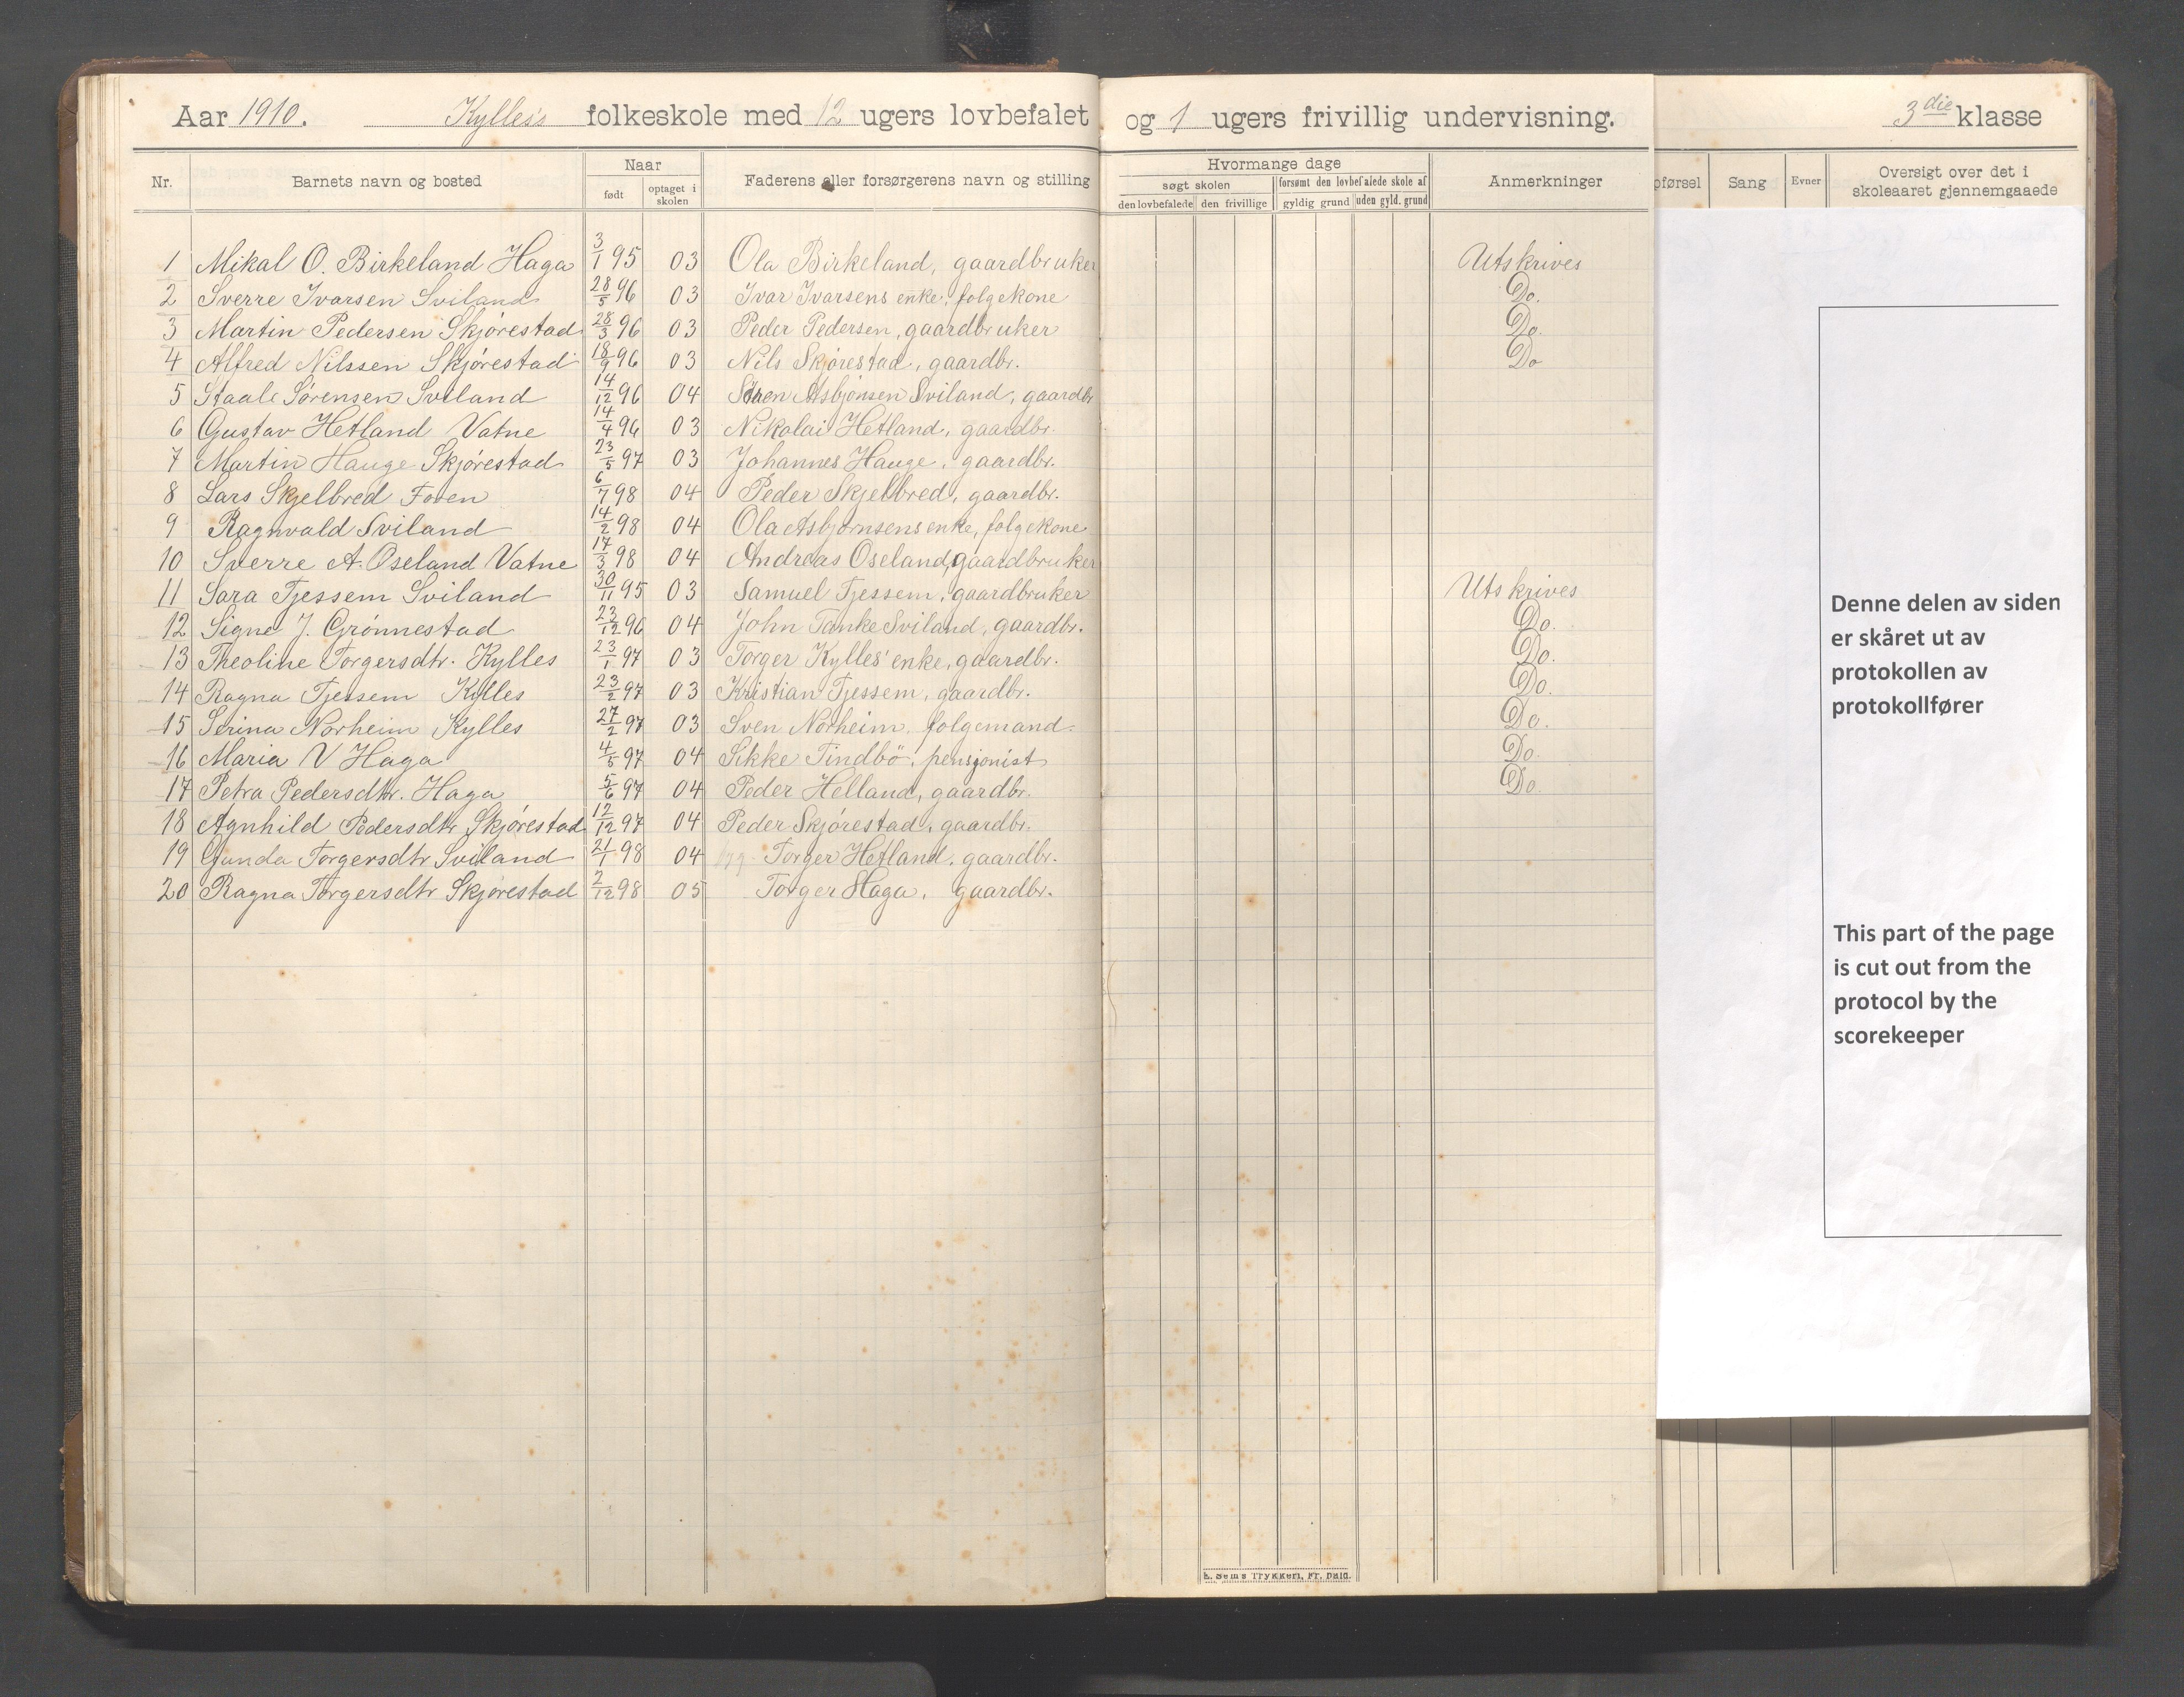 Aar 1910. Kylles's folkeskole med 12 ugers lovbefalet og 1 ugers frivillig undervisning. 3die klasse
Nr. Barnets navn og bosted Naar født optaget i skolen Faderens eller forsørgerens navn og stilling Hvormange dage søgt skolen den lovbefalede den frivillige forsømt den lovbefalede skole af gyldig grund uden gyld. grund Anmerkninger pførsel Sang Evner Oversigt over det i skoleaaret gjennemgaaede
1 Mikal O. Birkeland Haga 3/1 95 03 Ola Birkeland, gaardbruker Utskrives
2 Sverre Ivarsen Sviland 28/5 96 03 Ivar Ivarsens enke, folgekone Do.
3 Martin Pedersen Skjørestad 28/3 96 03 Peder Pedersen, gaardbruker Do.
4 Alfred Nilssen Skjørestad 18/9 96 03 Nils Skjørestad, gaardbr. Do
5 Staale Sørensen Sviland 14/12 96 04 Søren Asbjønsen Sviland, gaardbr
6 Gustav Hetland Vatne 14/4 96 03 Nikolai Hetland, gaardbr.
7 Martin Hauge Skjørestad 23/5 97 03 Johannes Hauge, gaardbr.
8 Lars Skjelbred Foren 6/7 98 04 Peder Skjelbred, gaardbr.
9 Ragnvald Sviland 14/2 98 04 Ola Asbjørnsens enke, folgekone
10 Sverre A. Oseland Vatne 17/3 98 04 Andreas Oseland, gaardbruker
11 Sara Tjessem Sviland 30/11 95 03 Samuel Tjessem, gaardbruker Utskrives
12 Signe J. Grønnestad 23/12 96 04 John Tanke Sviland, gaardbr. Do.
13 Theoline Torgersdtr. Kylles 23/1 97 03 Torger Kylles' enke, gaardbr. Do.
14 Ragna Tjessem Kylles 23/2 97 03 Kristian Tjessem, gaardbr. Do.
15 Serina Norheim Kylles 27/2 97 03 Sven Norheim, folgemand. Do.
16 Maria V Haga 4/5 97 04 Sikke Tindbö, pensjonist Do.
17 Petra Pedersdtr. Haga 5/6 97 04 Peder Helland, gaardbr. Do.
18 Agnhild Pedersdtr Skjørestad 12/12 97 04 Peder Skjørestad, gaardbr.
19 Gunda Torgersdtr Sviland 21/1 98 04 Torger Hetland, gaardbr.
20 Ragna Torgersdtr Skjørestad 2/12 98 05 Torger Haga, gaardbr.
Denne delen av siden
er skåret ut av
protokollen av
protokollfører
This part of the page
is cut out from the
protocol by the
scorekeeper
E. Sem's Trykkeri, Fr.hald.